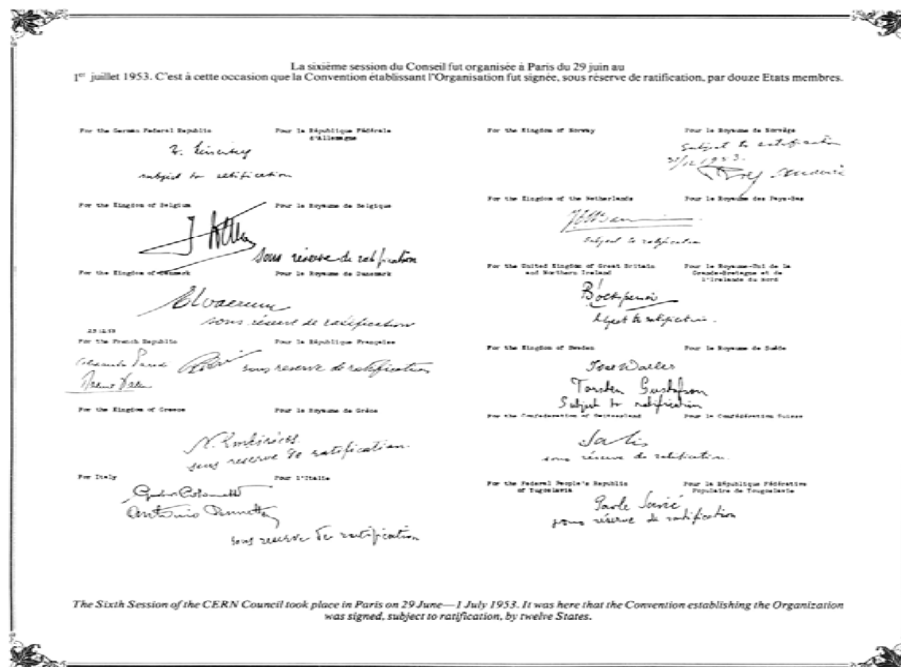 La sixième session du Conseil fut organisée à Paris du 29 juin au
1er juillet 1953. C'est à cette occasion que la Convention établissant l'Organisation fut signée, sous réserve de ratification, par douze Etats membres.
For the German Federal Republic Pour la République Fédérale
d'Allemagne
subject to ratification
For the Kingdom of Belgium Pour le Royaume de Belgique
sous réserve de ratification
For the Kingdom of Denmark Pour le Royaume de Danemark
sous réserve de ratification
For the French Republic Pour la République Française
sous reserve de ratification
For the Kingdom of Greece Pour le Royaume de Grèce
sous reserve de ratification.
For Italy Pour l'Italie
Antonio
sous reserve de ratification
For the Kingdom of Norway Pour le Royaume de Norvège
Subject to ratification
1953.
For the Kingdom of the Netherlands Pour le Royaume des Pays-Bas
subject to ratification
For the United Kingdom of Great Britain Pour le Royaume-Uni de la
and Northern Ireland Grande-Bretagne et de
l'Irelande du Nord
subject to ratification.
For the Kingdom of Sweden Pour le Royaume de Suède
Torsten Gustafson
Subject to ratification
For the Confederation of Switzerland Pour la Confédération Suisse
sous réserve de ratification.
For the Federal People's Republic Pour la République Fédérative
of Yugoslavia Populaire de Yougoslavie
Pavle Savić
sous réserve de ratification
The Sixth Session of the CERN Council took place in Paris on 29 June—1 July 1953. It was here that the Convention establishing the Organization
was signed, subject to ratification, by twelve States.